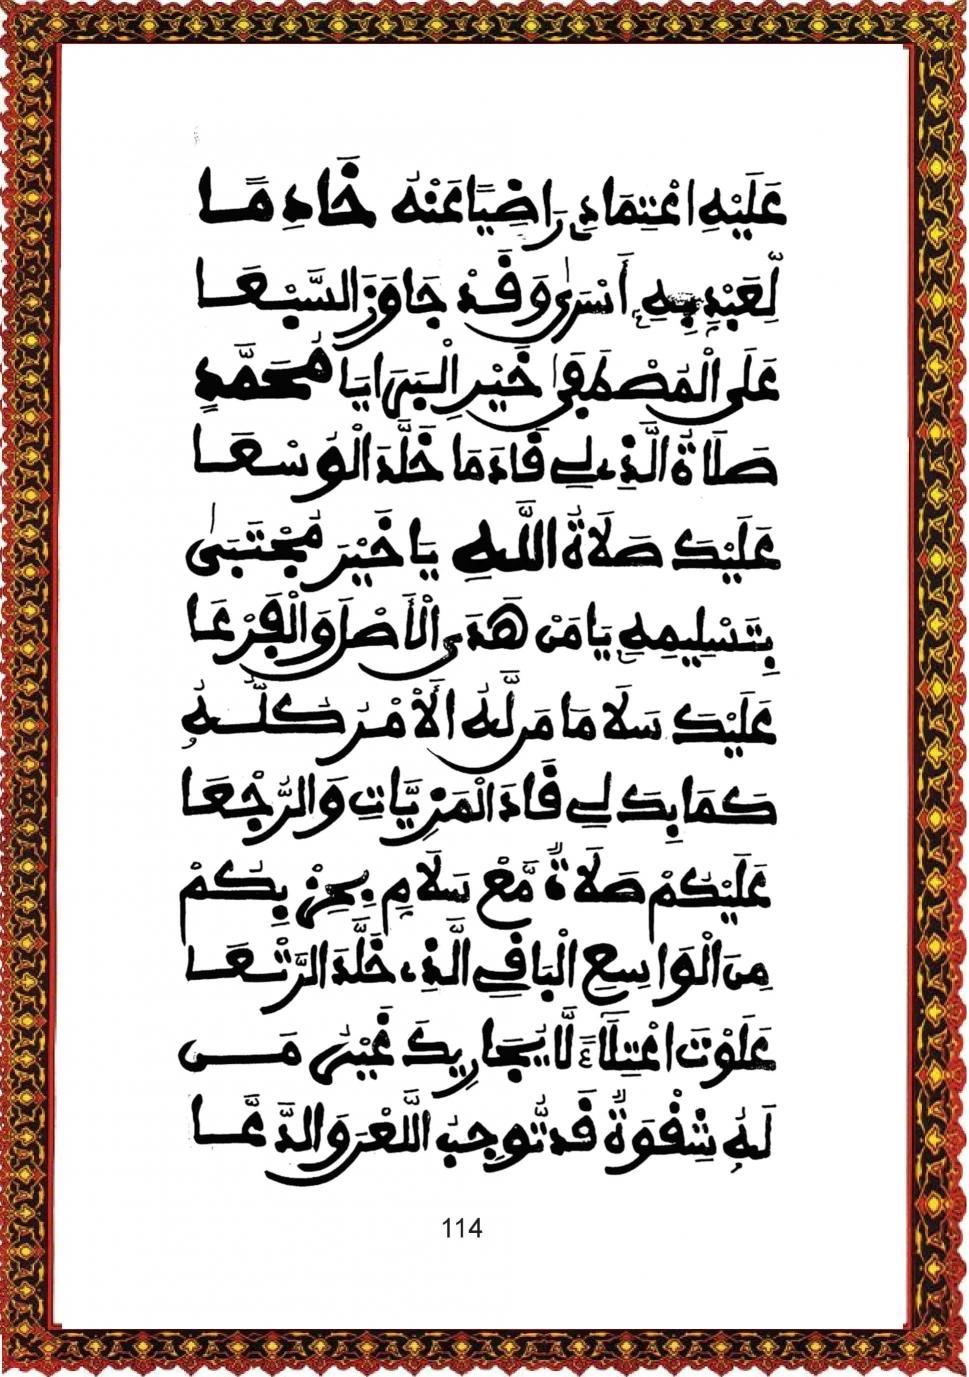 عَلَيْهِ اعْتِمَادِ رَاضِيًا عَنْهُ خَادِمًا
لِّعَبْدٍ بِهِ أَسْرَىٰ وَقَدْ جَاوَزَ السَّبْعَا
عَلَى الْمُصْطَفَىٰ خَيْرِ الْبَرَايَا مُحَمَّدٍ
صَلَاةُ الَّذِي لِي قَادَ مَا خَلَّدَ الْوُسْعَا
عَلَيْكَ صَلَاةُ اللَّهِ يَا خَيْرَ مُجْتَبَىٰ
بِتَسْلِيمِهِ يَا مَنْ هَدَى الْأَصْلَ وَالْفَرْعَا
عَلَيْكَ سَلَامَا مَن لَّهُ الْأَمْرُ كُلُّهُ
كَمَا بِكَ لِي قَادَ الْمَزِيَّاتِ وَالرُّجْعَا
عَلَيْكُمْ صَلَاةٌ مَّعْ سَلَامٍ بِحِزْبِكُمْ
مِنَ الْوَاسِعِ الْبَاقِي الَّذِي خَلَّدَ الرَّتْعَا
عَلَوْتَ اعْتِلَاءً لَّا يُجَارِيكَ غَيْرُ مَن
لَهُ شِقْوَةٌ قَد تُّوجِبُ اللَّعْنَ وَالدَّعَّا
114